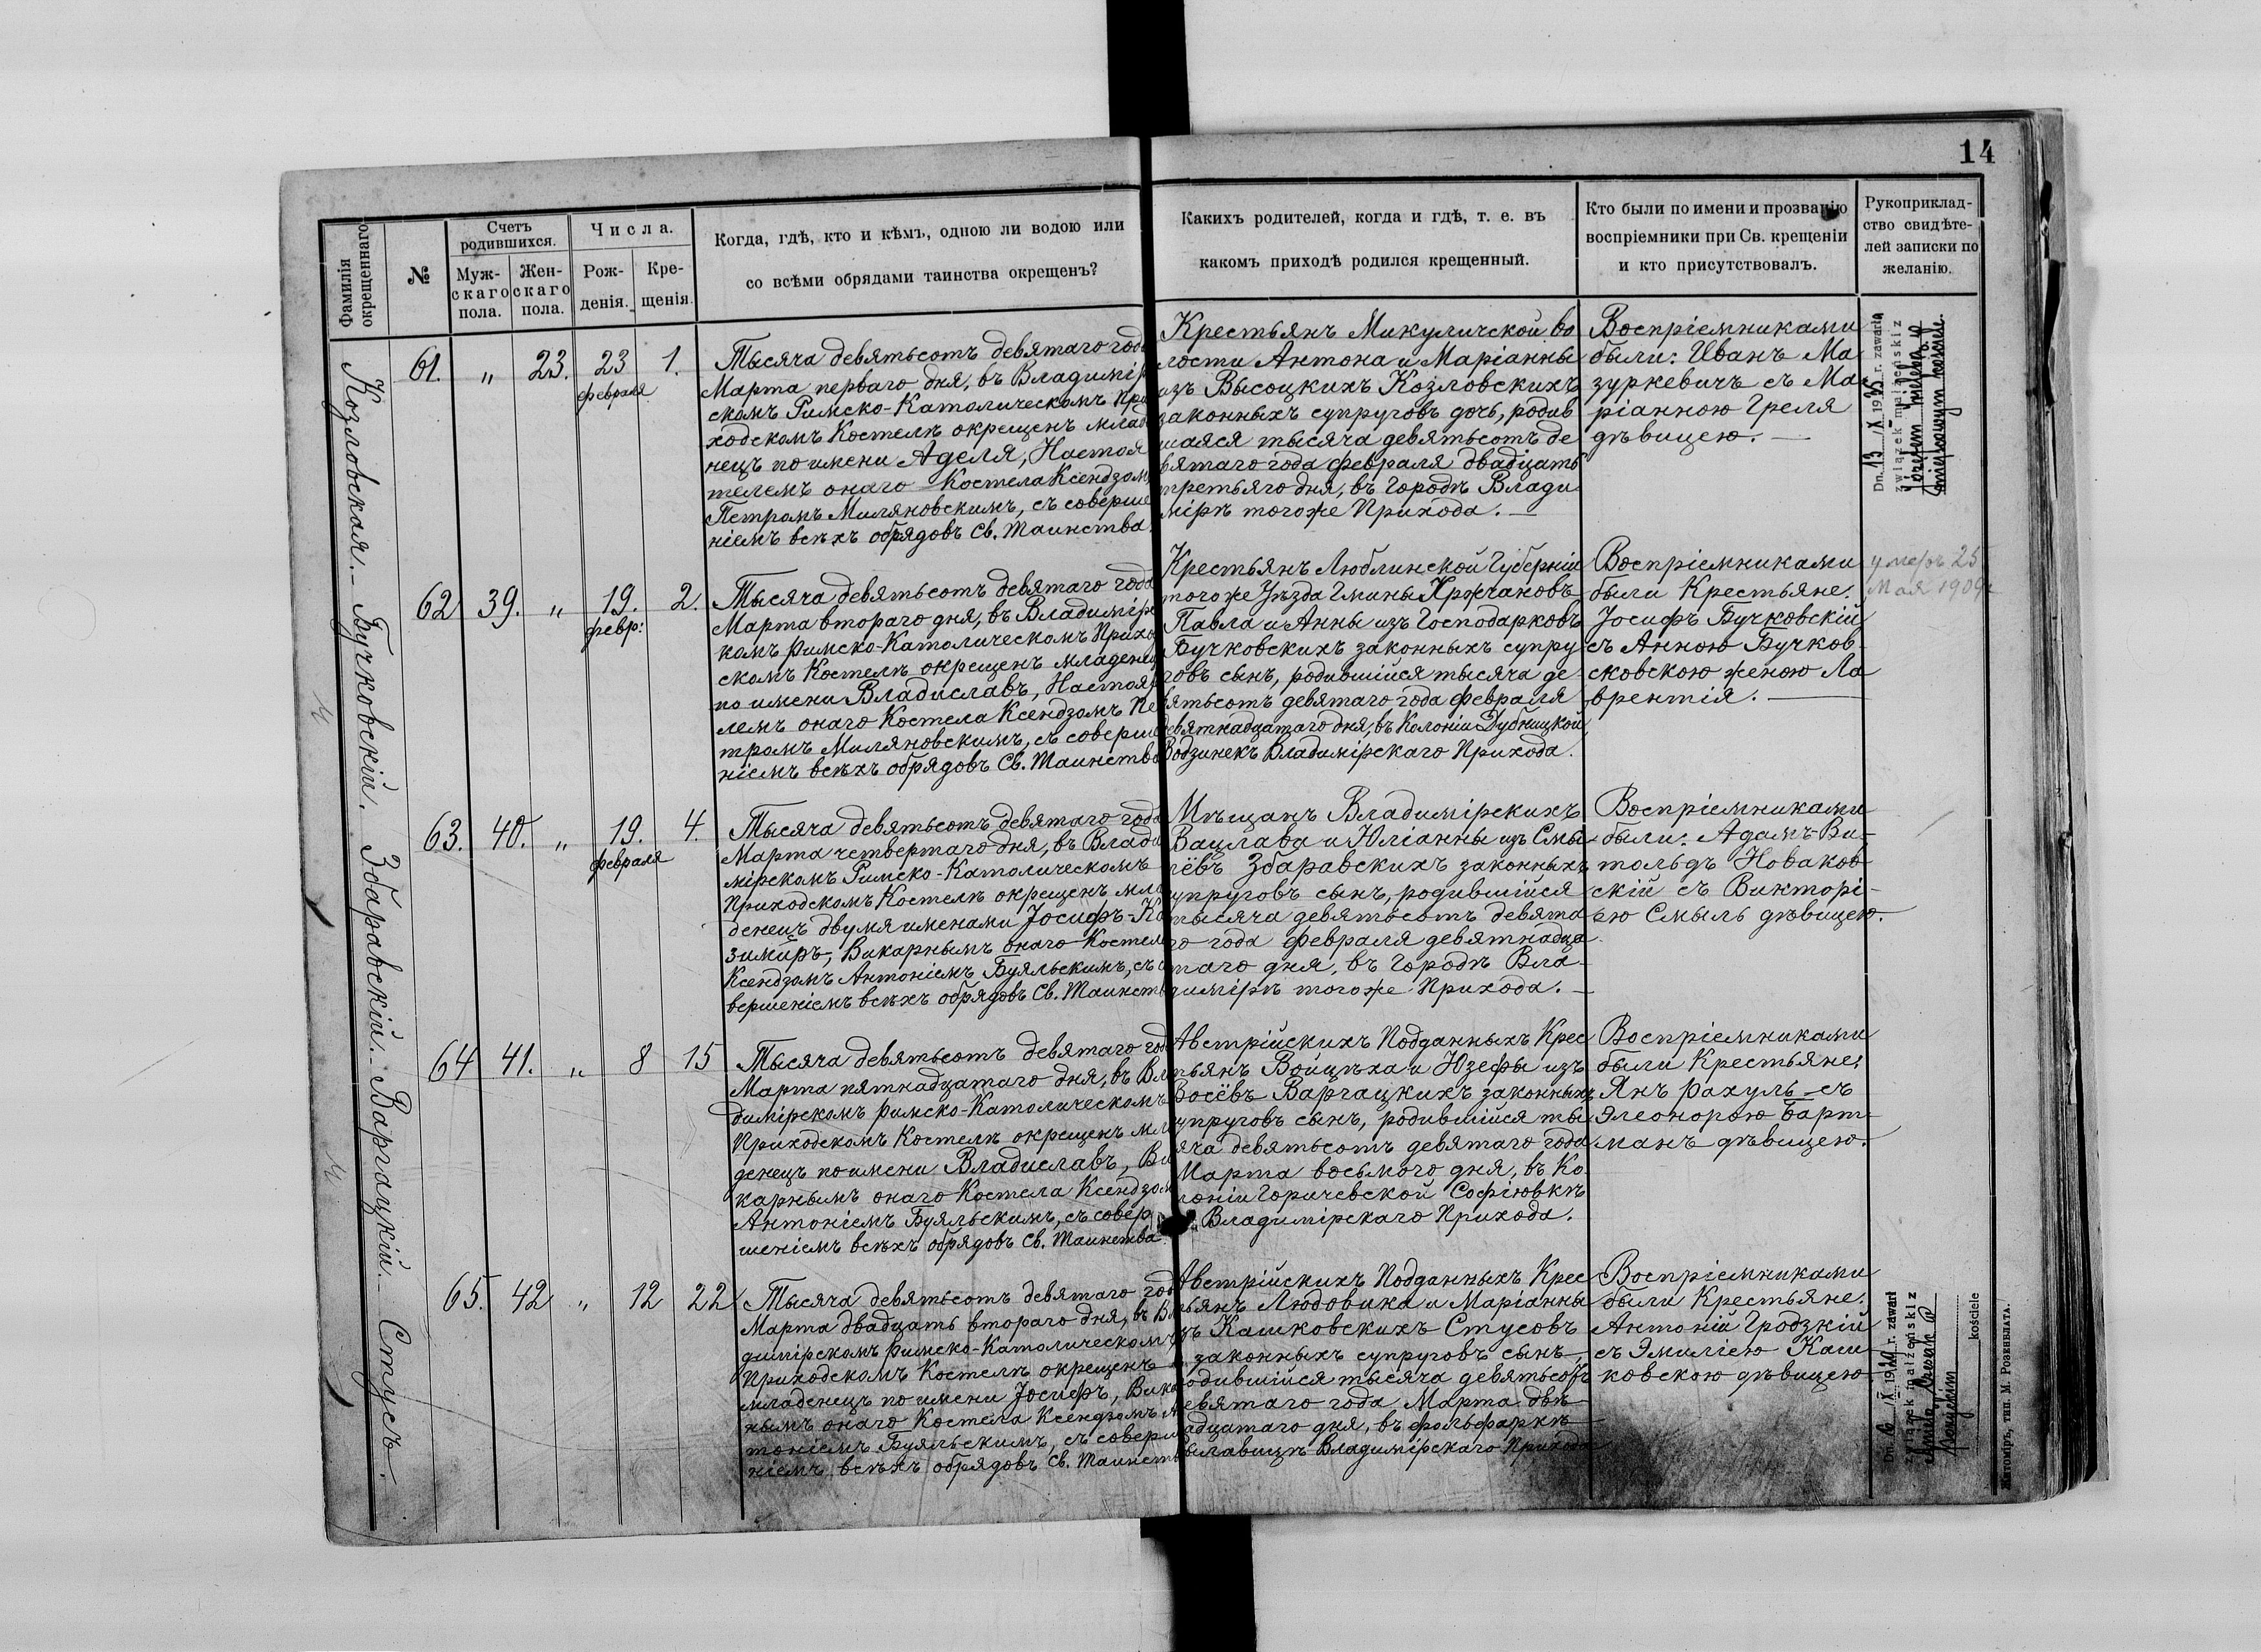 14
Фамилія
окрещеннаго
№
Счетъ
родившихся.
Муж-
скаго
пола.
Жен-
скаго
пола.
Числа.
Рож-
денія.
Кре-
щенія.
Когда, гдѣ, кто и кѣмъ, одною ли водою или
со всѣми обрядами таинства окрещенъ?
Какихъ родителей, когда и гдѣ, т. е. въ
какомъ приходѣ родился крещенный.
Кто были по имени и прозванію
воспріемники при Св. крещеніи
и кто присутствовалъ.
Рукоприклад-
ство свидѣте-
лей записки по
желанію.
Козловская.
61. " 23. 23 февраля 1.
Тысяча девятьсотъ девятаго года
Марта перваго дня, въ Владимір
скомъ Римско-Католическомъ При
ходскомъ Костелѣ окрещенъ млад
нецъ по имени Аделя, Настоя
телемъ онаго Костела Ксендзомъ
Петромъ Миляновскимъ, съ соверше
ніемъ всѣхъ обрядовъ Св. Таинства.
Крестьянъ Микуличской во
лости Антона и Маріанны
изъ Высоцкихъ Козловскихъ
законныхъ супруговъ дочь, родив
шаяся тысяча девятьсотъ де
вятаго года февраля двадцать
третьяго дня, въ городѣ Влади
мірѣ тогоже Прихода.
Воспріемниками
были: Иванъ Ма
зуркевичъ съ Ма
ріанною Греля
дѣвицею.
Dn. 13 IX 1935 r. zawarła
związek małżeński z
Józefem
Бучковскій.
62 39. " 19. февр: 2.
Тысяча девятьсотъ девятаго года
Марта втораго дня, въ Владимірс
комъ Римско-Католическомъ Прихо
скомъ Костелѣ окрещенъ младенец
по имени Владиславъ, Настоят
лемъ онаго Костела Ксендзомъ Пе
тромъ Миляновскимъ, съ соверше
ніемъ всѣхъ обрядовъ Св. Таинства
Крестьянъ Люблинской Губерніи
тогоже Уѣзда Гмины Кржчановъ
Павла и Анны изъ Господарковъ
Бучковскихъ законныхъ супру
говъ сынъ, родившійся тысяча де-
вятьсотъ девятаго года февраля
девятнадцатаго дня, въ Колоніи Дубницкой
Водзинекъ Владимірскаго Прихода.
Воспріемниками
были Крестьяне:
Іосифъ Бучковскій
съ Анною Бучков-
сковскою женою Ла
врентія.
умеръ 25
Мая 1909г
Збаравскій.
63. 40. " 19. февраля 4.
Тысяча девятьсотъ девятаго года
Марта четвертаго дня, въ Влади
мірскомъ Римско-Католическомъ
Приходскомъ Костелѣ окрещенъ мла
денецъ двумя именами Іосифъ-Ка
зиміръ, Викарнымъ онаго Костела
Ксендзомъ Антоніемъ Буяльскимъ, съ со
вершеніемъ всѣхъ обрядовъ Св. Таинств
Мѣщанъ Владимірскихъ
Вацлава и Юліанны изъ Смы
лёвъ Збаравскихъ законныхъ
супруговъ сынъ, родившійся
тысяча девятьсотъ девята
го года февраля девятнадца
таго дня, въ городѣ Вла-
димірѣ тогоже Прихода.
Воспріемниками
были: Адамъ-Ви-
тольдъ Новаков
скій съ Викторі-
ею Смыль дѣвицею.
Варгацкій.
64 41. " 8 15
Тысяча девятьсотъ девятаго год
Марта пятнадцатаго дня, въ Вла
димірскомъ Римско-Католическомъ
Приходскомъ Костелѣ окрещенъ мла
денецъ по имени Владиславъ, Ви
карнымъ онаго Костела Ксендзом
Антоніемъ Буяльскимъ, съ совер
шеніемъ всѣхъ обрядовъ Св. Таинства.
Австрійскихъ Подданныхъ Крес
тьянъ Войцѣха и Юзефы изъ
Восёвъ Варгацкихъ законныхъ
супруговъ сынъ, родившійся ты
сяча девятьсотъ девятаго года
Марта восьмого дня, въ Ко
лоніи Горичевской Софіювкѣ
Владимірскаго Прихода.
Воспріемниками
были Крестьяне:
Янъ Рахуль съ
Элеонорою Барт-
манъ дѣвицею.
Стусъ.
65. 42 " 12 22
Тысяча девятьсотъ девятаго год
Марта двадцать втораго дня, въ Вл
димірскомъ Римско-Католическомъ
Приходскомъ Костелѣ окрещенъ
младенецъ по имени Іосифъ, Викар
нымъ онаго Костела Ксендзомъ Ан
тоніемъ Буяльскимъ, съ соверш
ніемъ всѣхъ обрядовъ Св. Таинств
Австрійскихъ Подданныхъ Крес
тьянъ Людовика и Маріанны
изъ Кашковскихъ Стусовъ
законныхъ супруговъ сынъ
родившійся тысяча девятьсотъ
девятаго года Марта двѣ
надцатаго дня, въ фольфаркѣ
Владимірскаго Прихода
Воспріемниками
были Крестьяне:
Антоній Гродзкій
съ Эмиліею Каш-
ковскою дѣвицею
r. zawarł
związek małżeński z
kościele
Житоміръ, тип. М. Розенблата.